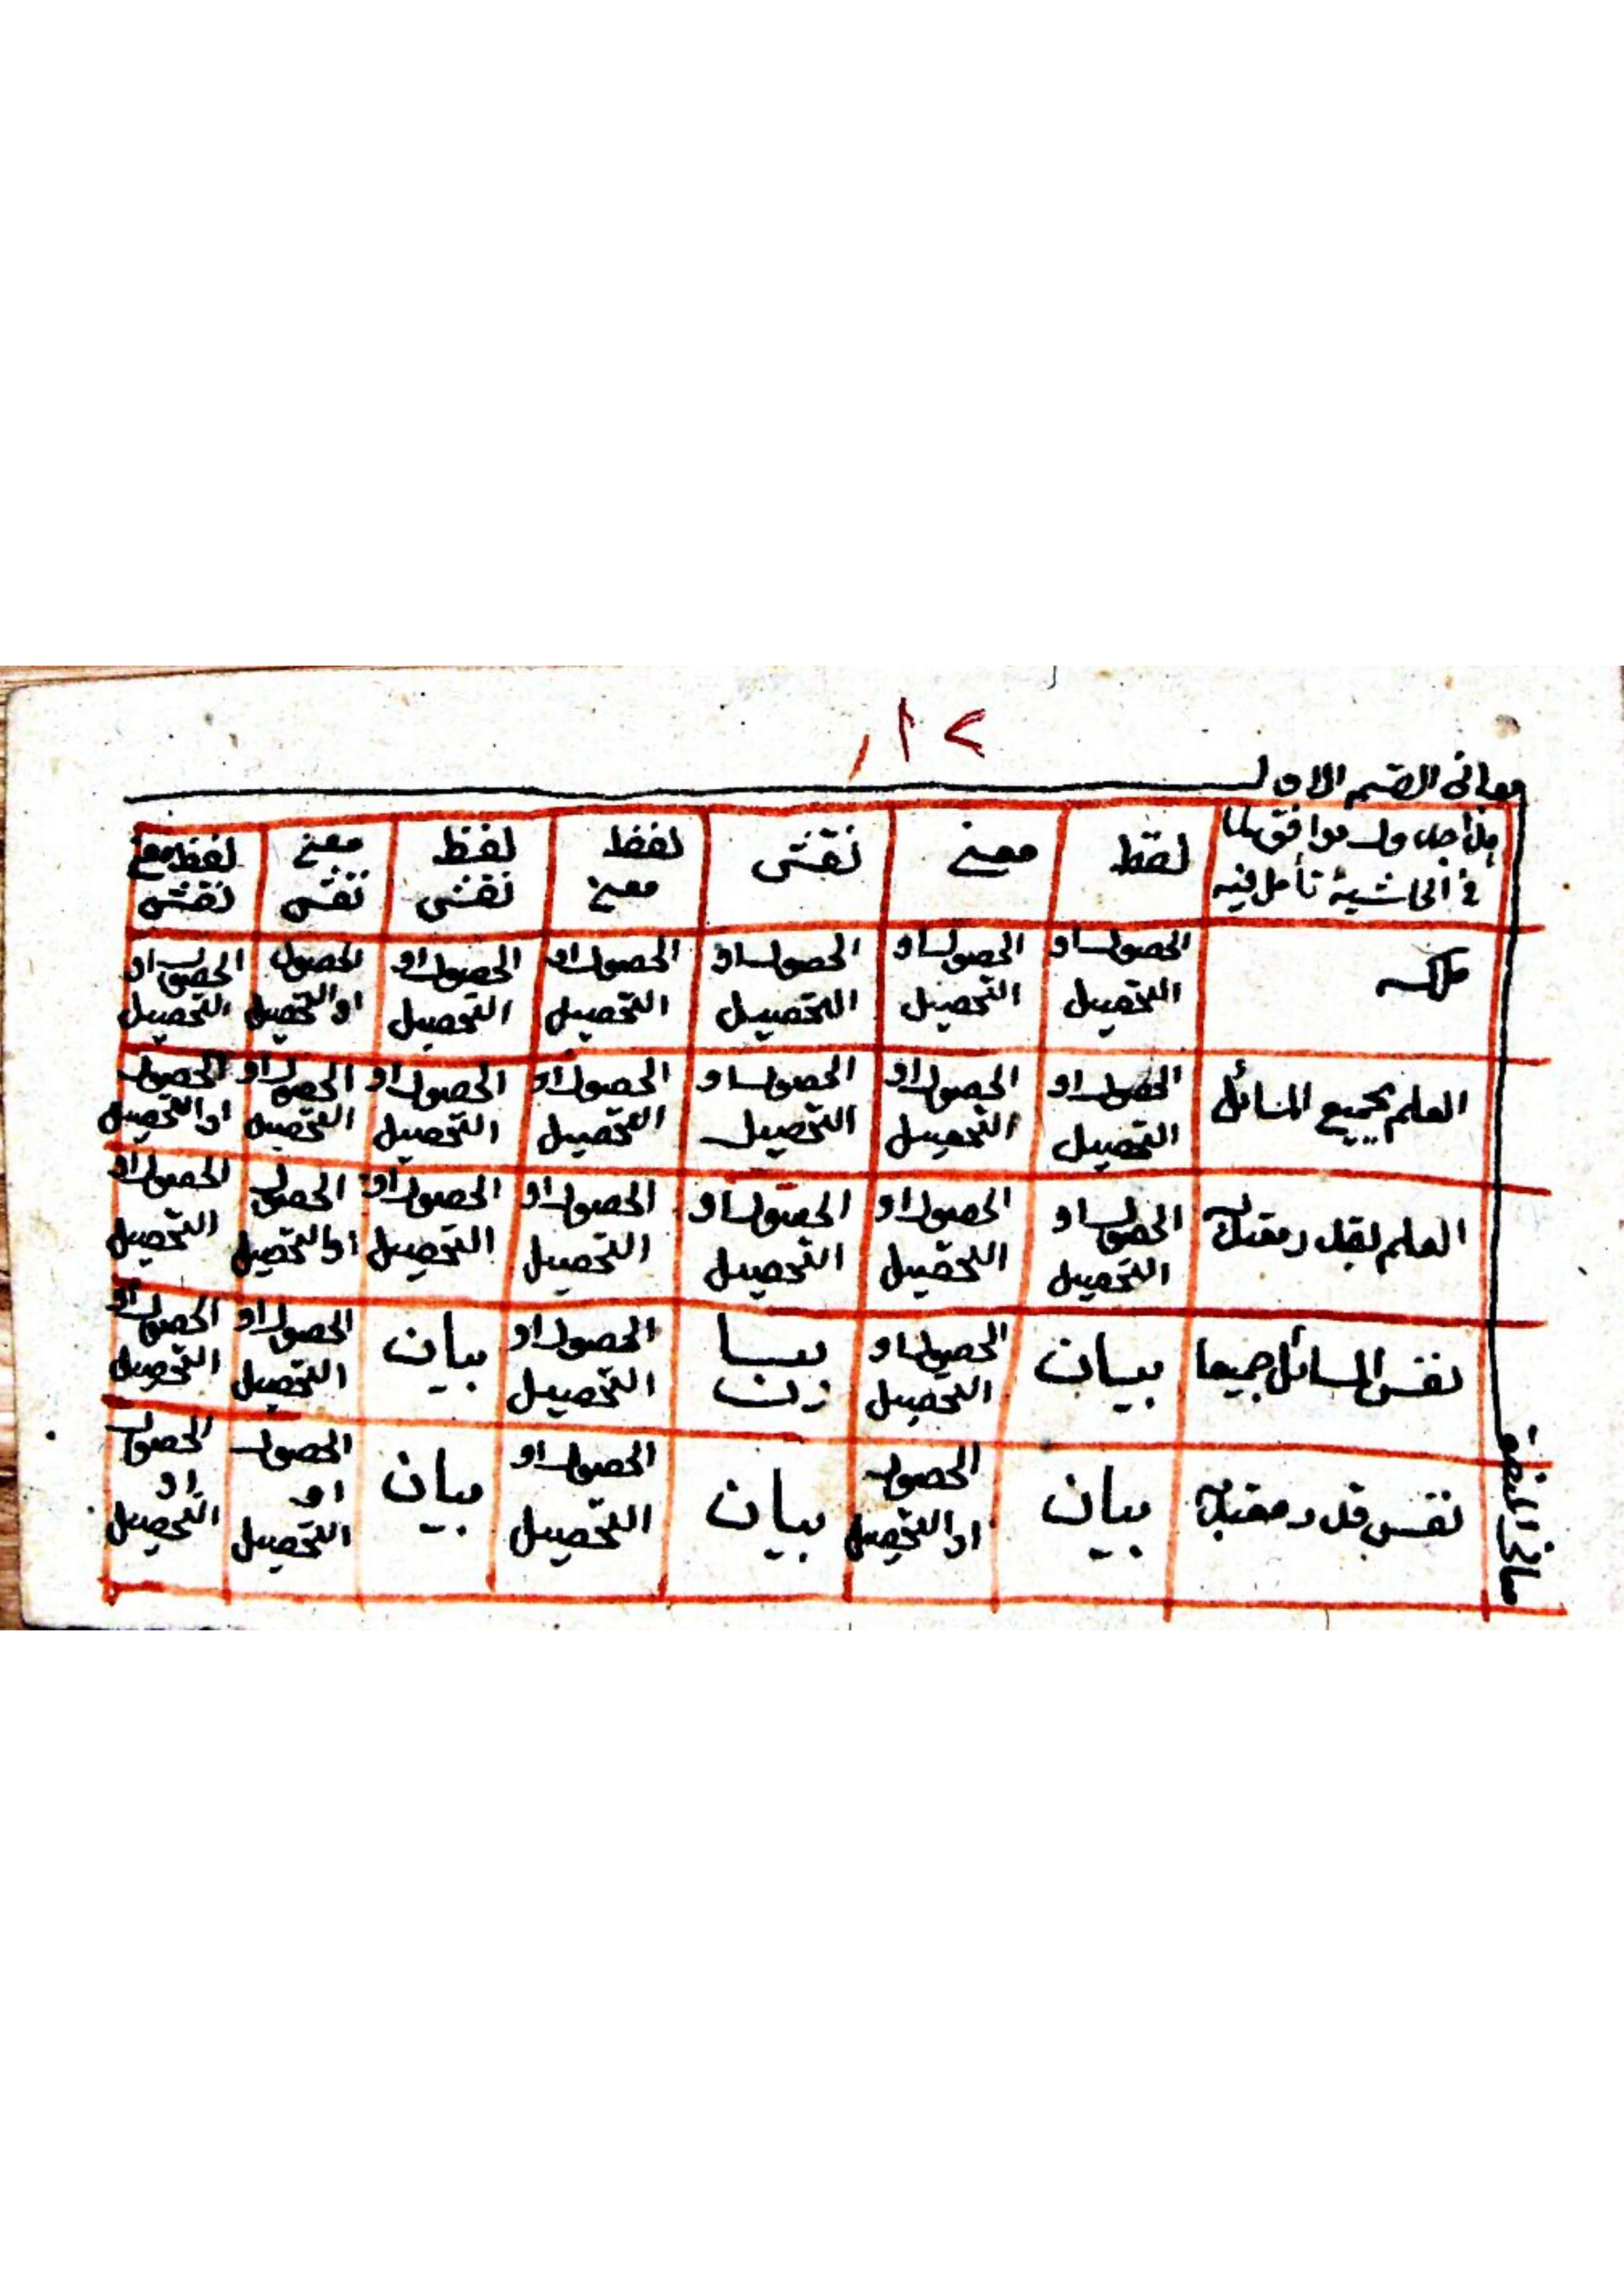 ١٢
معانى القسم الاول
هذا جدول موافق لما
فى الحاشية تأمل فيه
لفظ
معنى
نقش
لفظ
معنى
لفظ
نقش
معنى
نقش
لفظ معنى
نقش
ملكه
الحصول او
التحصيل
الحصول او
التحصيل
الحصول او
التحصيل
الحصول او
التحصيل
الحصول او
التحصيل
الحصول
او التحصيل
الحصول او
التحصيل
العلم بجميع المسائل
الحصول او
التحصيل
الحصول او
التحصيل
الحصول او
التحصيل
الحصول او
التحصيل
الحصول او
التحصيل
الحصول او
التحصيل
الحصول
او التحصيل
العلم بقدر معتد به
الحصول او
التحصيل
الحصول او
التحصيل
الحصول او
التحصيل
الحصول او
التحصيل
الحصول او
التحصيل
الحصول
او التحصيل
الحصول او
التحصيل
نفس المسائل جميعا
بيان
الحصول او
التحصيل
بيا
ن
الحصول او
التحصيل
بيان
الحصول او
التحصيل
الحصول او
التحصيل
نفس قدر معتد به
بيان
الحصول
او التحصيل
بيان
الحصول او
التحصيل
بيان
الحصول
او
التحصيل
الحصول
او
التحصيل
معانى المنطق